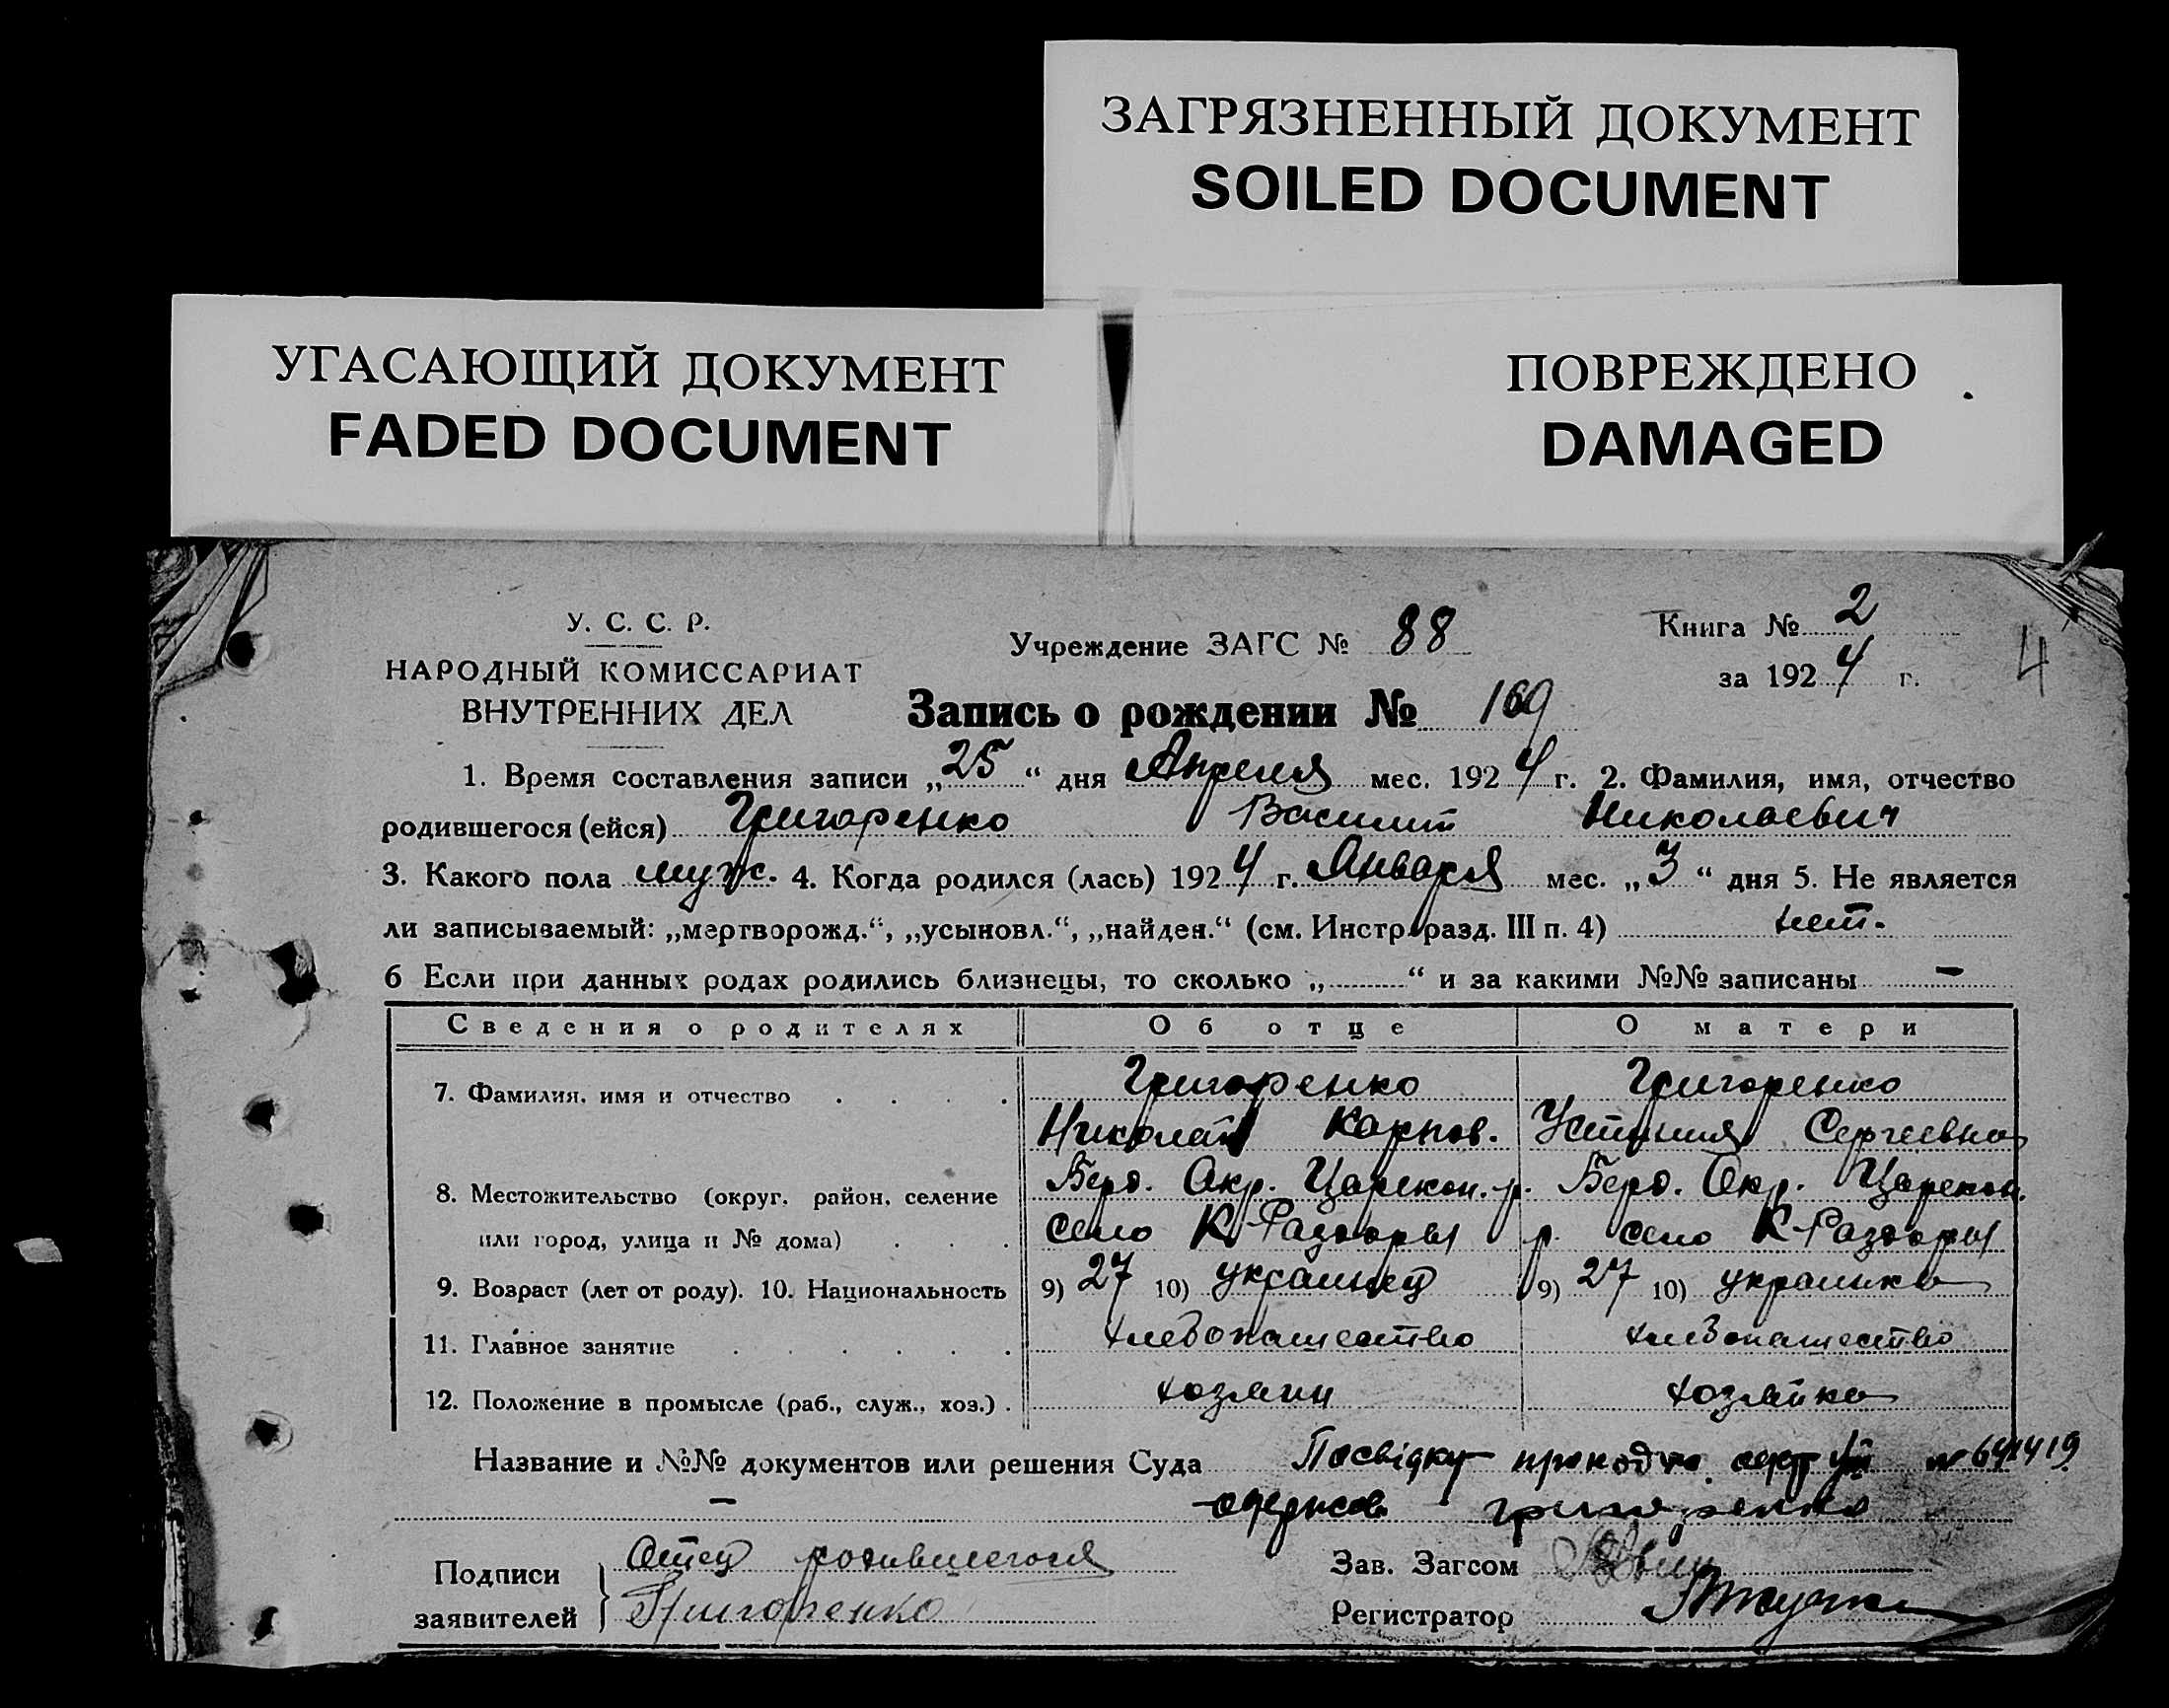 ЗАГРЯЗНЕННЫЙ ДОКУМЕНТ
SOILED DOCUMENT
УГАСАЮЩИЙ ДОКУМЕНТ
FADED DOCUMENT
ПОВРЕЖДЕНО
DAMAGED
У. С. С. Р.
НАРОДНЫЙ КОМИССАРИАТ
ВНУТРЕННИХ ДЕЛ
Учреждение ЗАГС № 88
Книга № 2
за 1924 г.
4
Запись о рождении № 169
1. Время составления записи „25“ дня Апреля мес. 1924 г. 2. Фамилия, имя, отчество
родившегося (ейся) Григоренко Василий Николаевич
3. Какого пола муж. 4. Когда родился (лась) 1924 г. Января мес. „3“ дня 5. Не является
ли записываемый: „мертворожд.“, „усыновл.“, „найден.“ (см. Инстр. разд. III п. 4) нет.
6 Если при данных родах родились близнецы, то сколько „ “ и за какими №№ записаны —
Сведения о родителях Об отце О матери
7. Фамилия, имя и отчество Григоренко Григоренко
Николай Карпов. Устиния Сергеевна
8. Местожительство (округ, район, селение Берд. Окр. Царекон. р. Берд. Окр. Царекон.
или город, улица и № дома) село К-Раздоры р. село К-Раздоры
9. Возраст (лет от роду). 10. Национальность 9) 27 10) украинец 9) 27 10) украинка
11. Главное занятие хлебопашество хлебопашество
12. Положение в промысле (раб., служ., хоз.) хозяин хозяйка
Название и №№ документов или решения Суда Посвідку №641419
— одержав Григоренко
Подписи заявителей Отец родившегося
Григоренко
Зав. Загсом
Регистратор